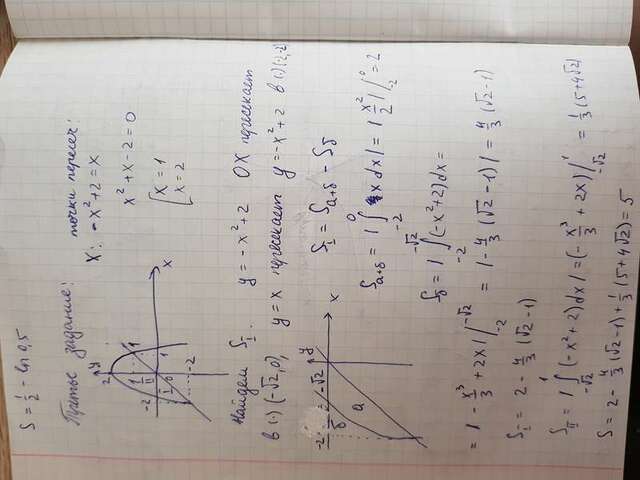 S = 1/2 - ln 0,5
Третье задание:
точки пересеч:
X: -x² + 2 = x
x² + x - 2 = 0
[ x = 1
x = 2
y
2
1
II
-2
I
0
1
x
-2
Найдем S_I. y = -x² + 2 OX пересекает
в (·) (-√2, 0), y = x пересекает y = -x² + 2 в (·) (-2, -2)
-2
-√2
y
x
б
a
S_I = S_{a+б} - S_б
S_{a+б} = |∫_{-2}^{0} x dx| = |x²/2| |_{-2}^{0} = 2
S_б = |∫_{-2}^{-√2} (-x² + 2) dx =
= |-x³/3 + 2x| |_{-2}^{-√2} = |-4/3 (√2 - 1)| = 4/3 (√2 - 1)
S_I = 2 - 4/3 (√2 - 1)
S_II = |∫_{-√2}^{1} (-x² + 2) dx| = (-x³/3 + 2x) |_{-√2}^{1} = 1/3 (5 + 4√2)
S = 2 - 4/3 (√2 - 1) + 1/3 (5 + 4√2) = 5